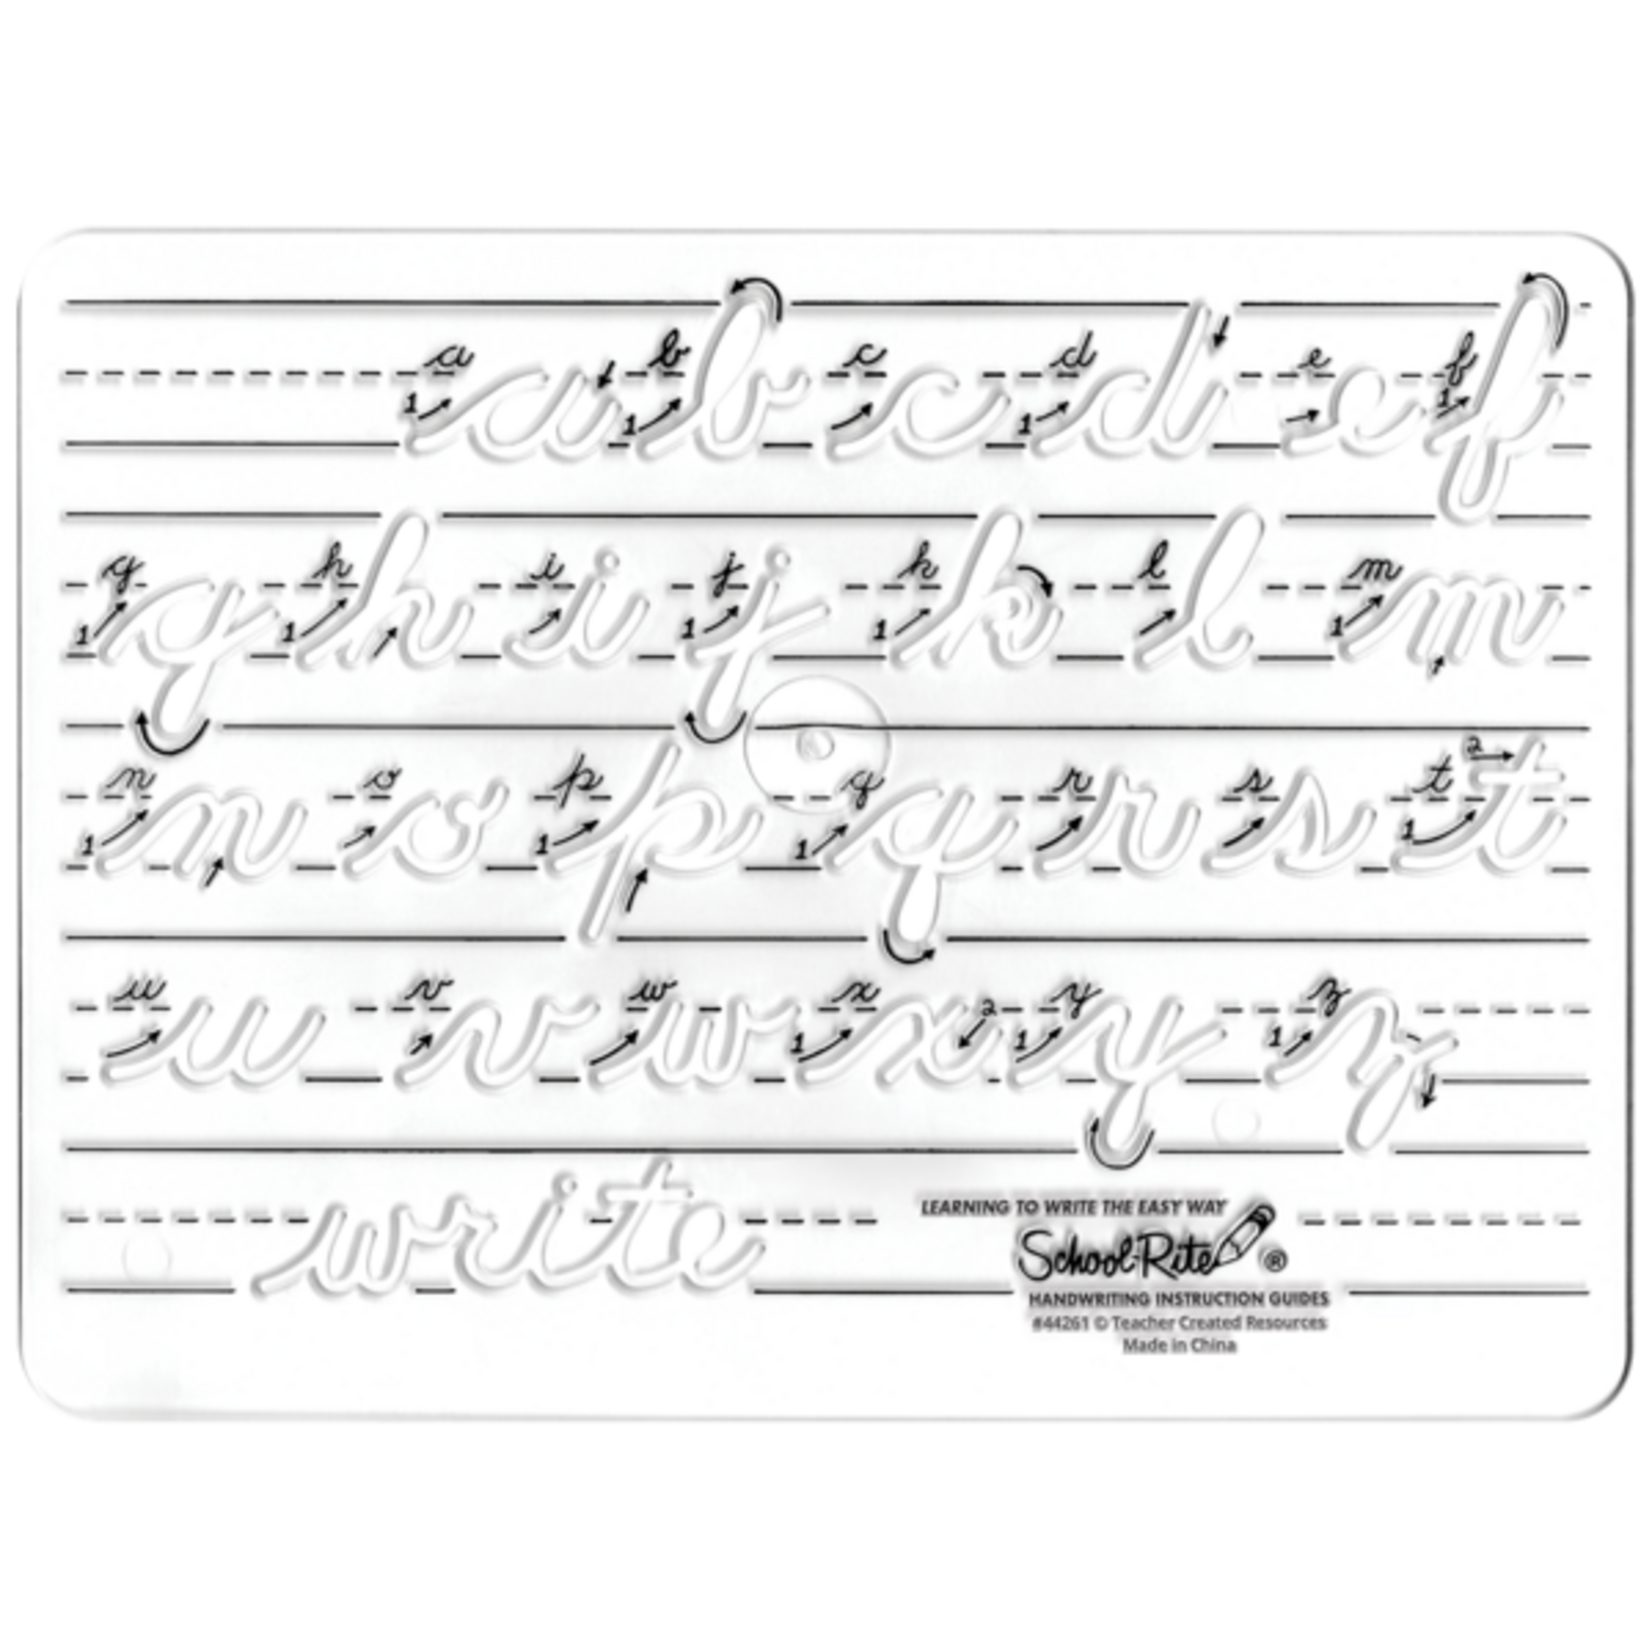 a 1 b 1 c d 1 e f 1
a b c d e f
g 1 h 1 i j 1 k 1 l m 1
g h i j k l m
n 1 o p 1 q 1 r s t 1 2
n o p q r s t
u v w x 1 2 y 1 z 1
u v w x y z
write
LEARNING TO WRITE THE EASY WAY
School-Rite ®
HANDWRITING INSTRUCTION GUIDES
#44261 © Teacher Created Resources
Made in China